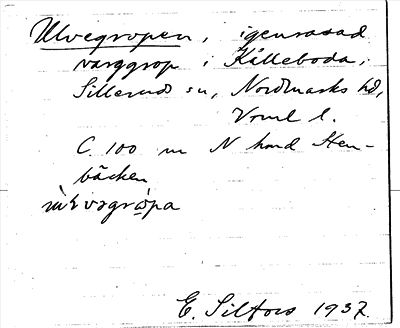 Ulvegropen, igenrasad
varggrop i Killeboda,
Sillerud sn, Nordmarks hd,
Vrml l.
C. 100 m N
bäcken
E. Silfors 1937.